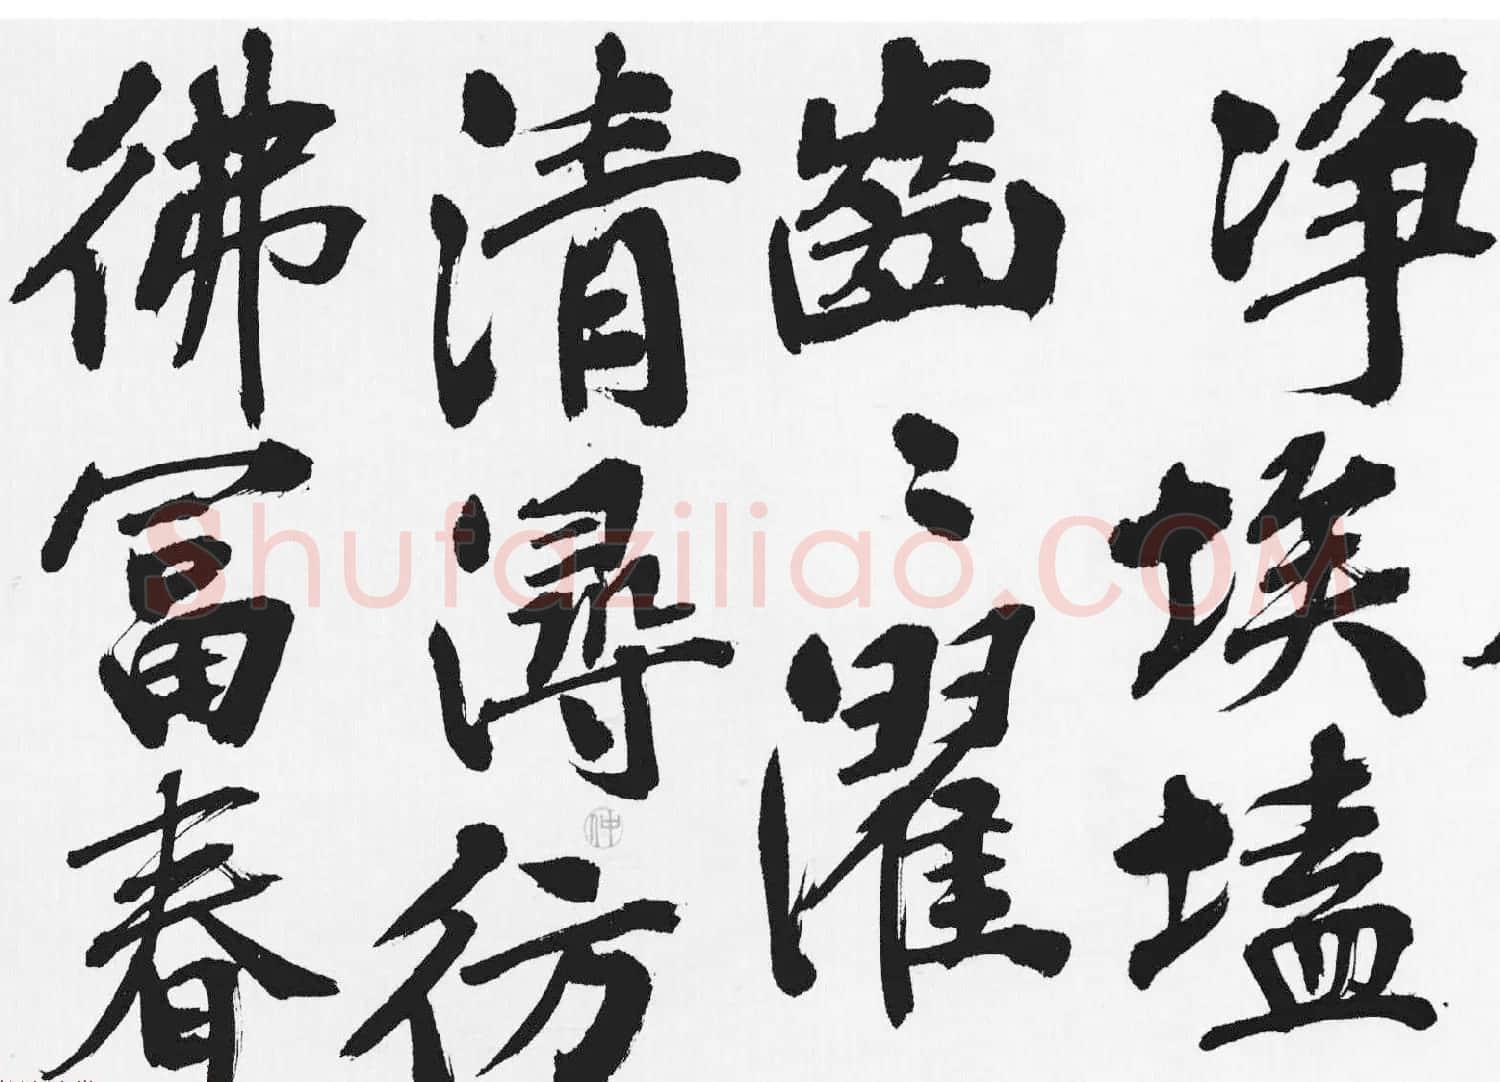 净埃壒
齒〻濯
清潯彷
彿冨春
Shufaziliao.COM
仲